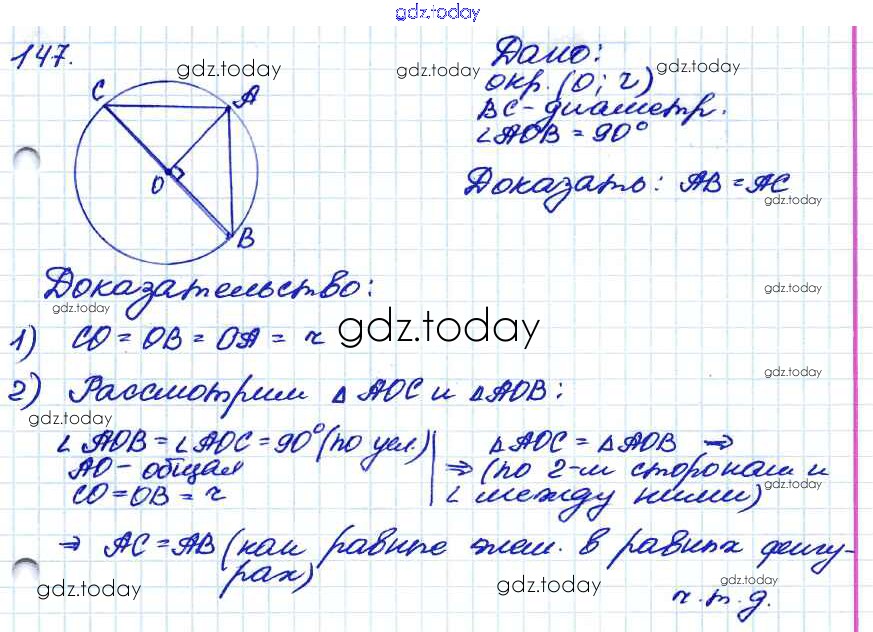 gdz.today
147.
gdz.today
C
A
O
B
Дано:
gdz.today
gdz.today
окр. (O; r)
BC - диаметр.
∠AOB = 90°
Доказать: AB = AC
gdz.today
Доказательство:
gdz.today
gdz.today
1) CO = OB = OA = r
gdz.today
gdz.today
2) Рассмотрим △ AOC и △AOB:
gdz.today
∠ AOB = ∠ AOC = 90° (по усл.)
AO - общая
CO = OB = r
△AOC = △AOB ⇒
⇒ (по 2-м сторонам и
∠ между ними)
gdz.today
⇒ AC = AB (как равные элем. в равных фигу-
рах)
gdz.today
gdz.today
gdz.today
ч.т.д.